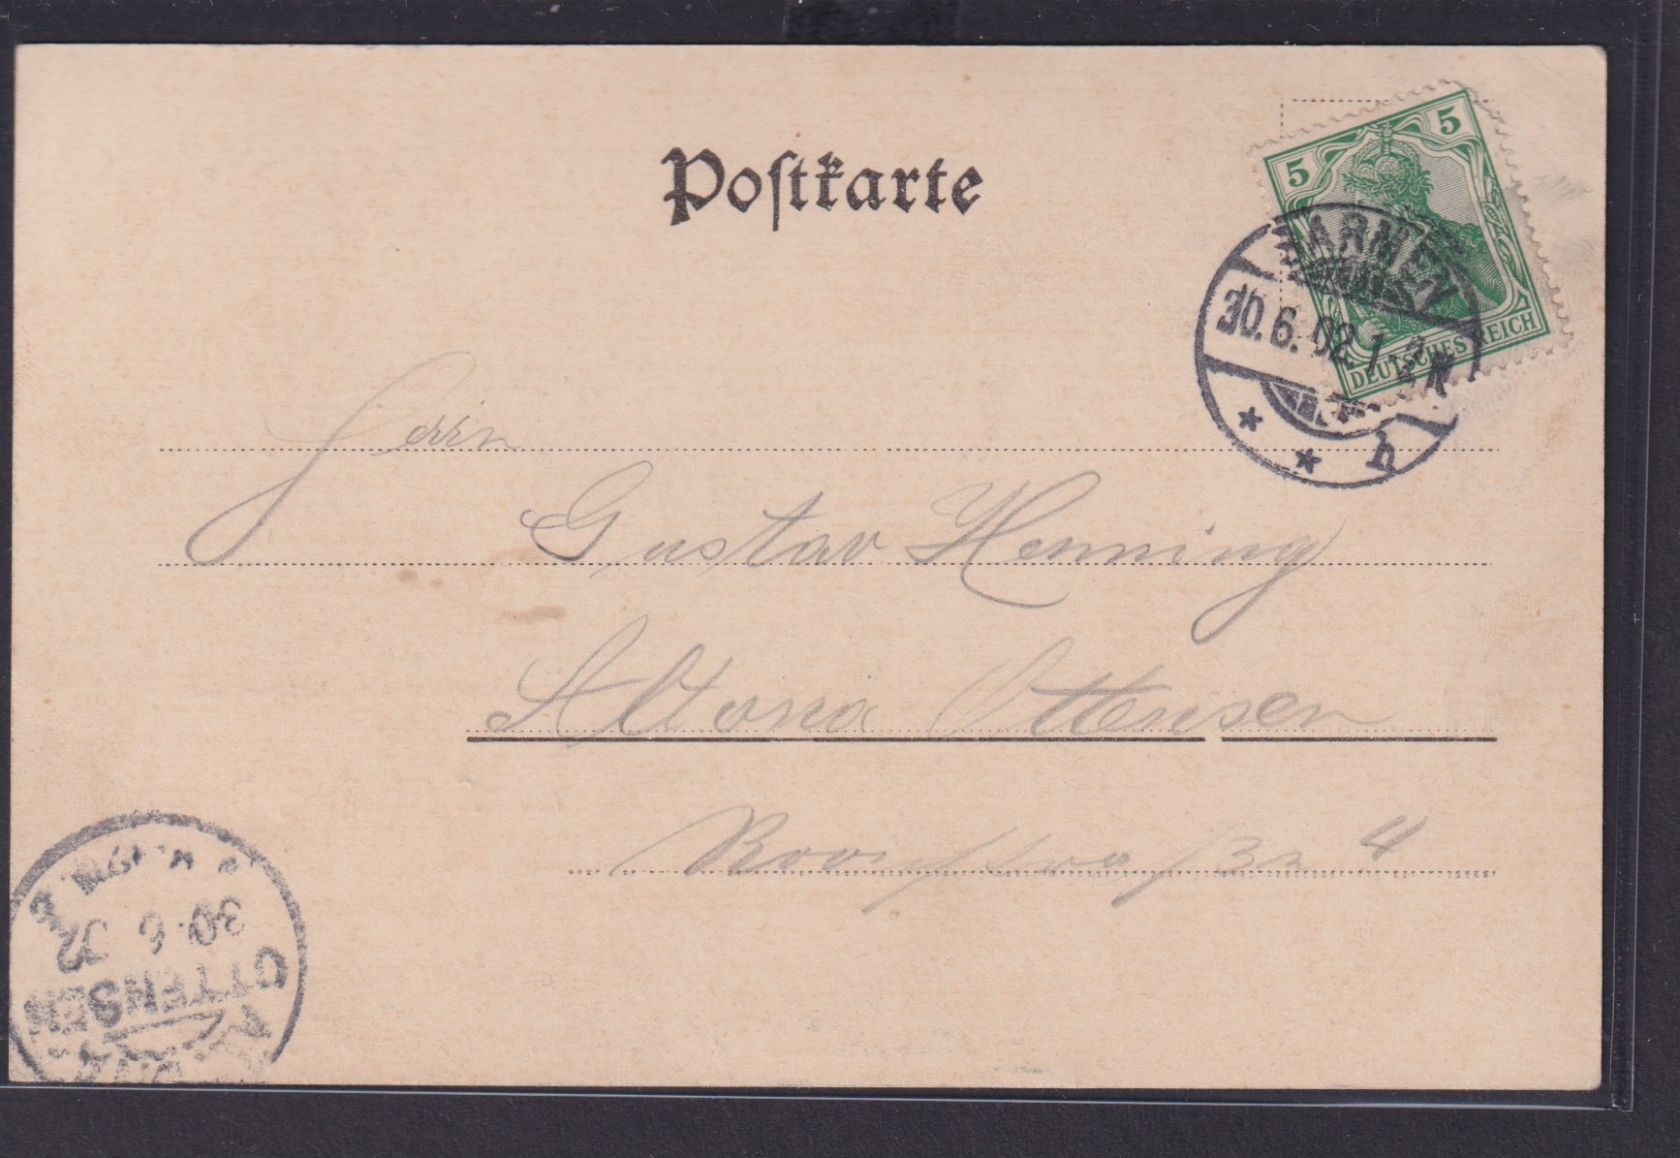 Postkarte
5 5
DEUTSCHES REICH
BARMEN
30.6.02.1-2N
* * h
Herrn
Gustav Henning
Altona Ottensen
4
30. 6 02
OTTENSEN